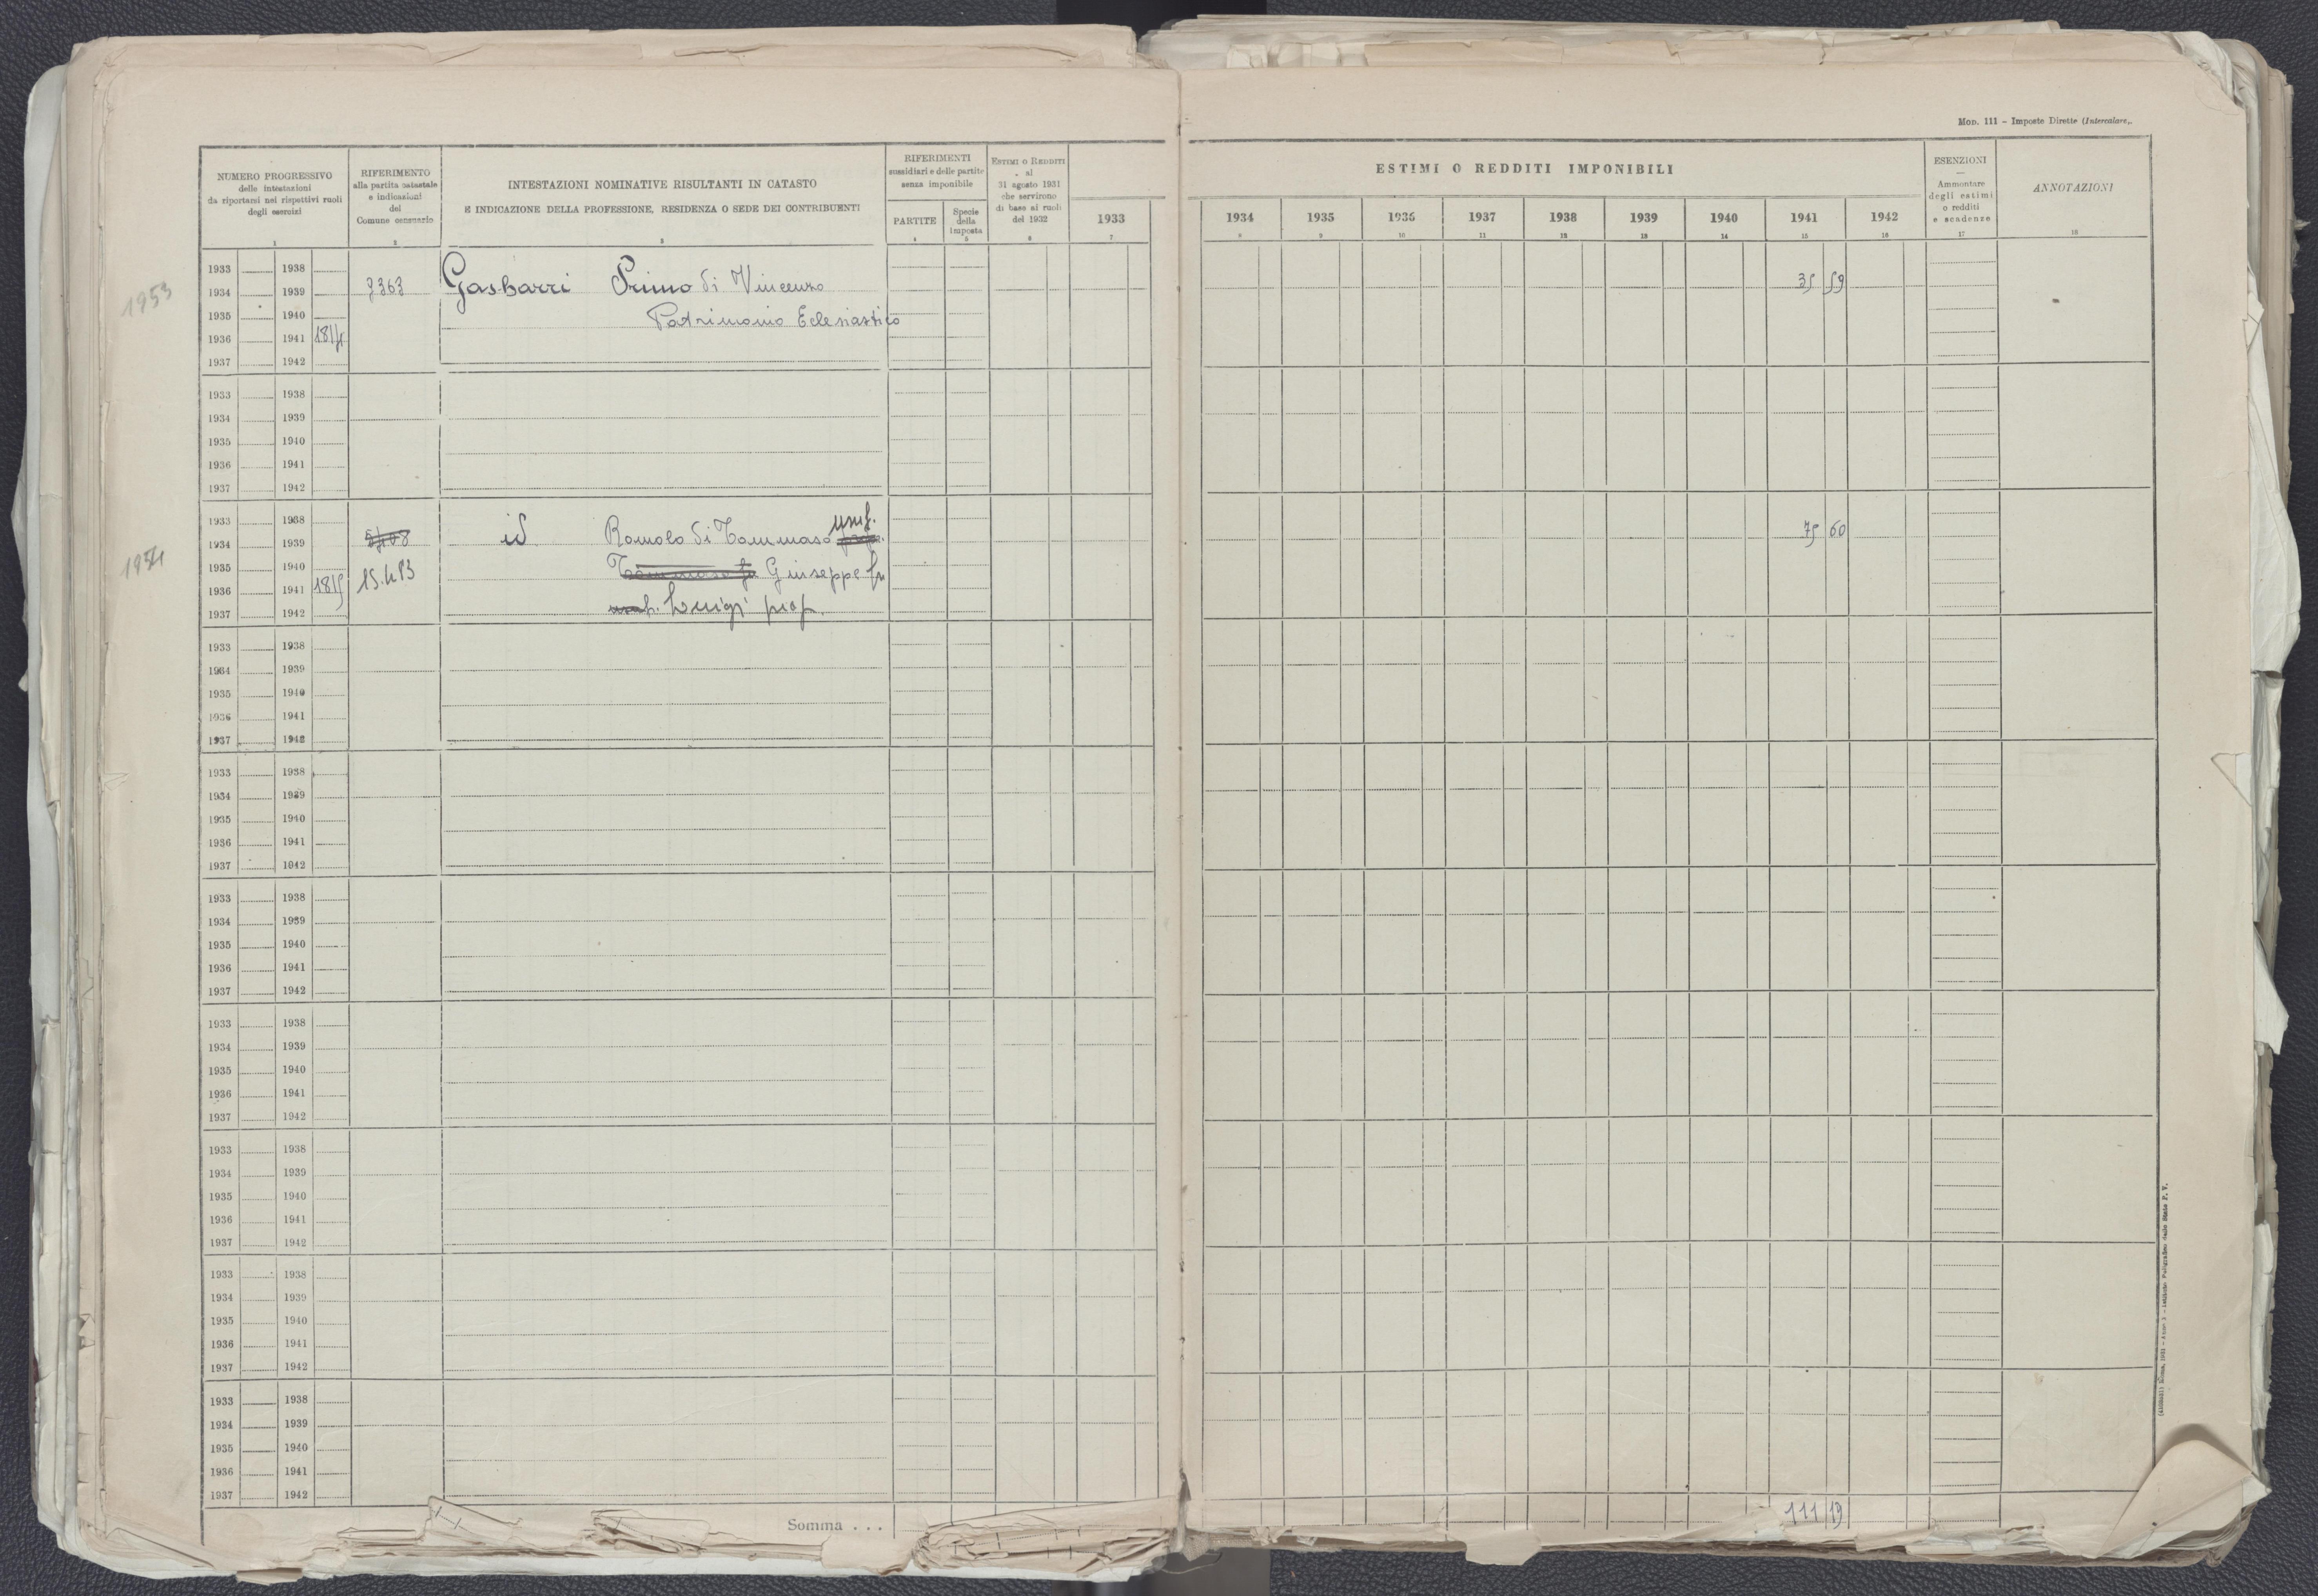 Mod. 111 - Imposte Dirette (Intercalare).
NUMERO PROGRESSIVO
delle intestazioni
da riportarsi nei rispettivi ruoli
degli esercizi
1
RIFERIMENTO
alla partita catastale
e indicazioni
del
Comune censuario
2
INTESTAZIONI NOMINATIVE RISULTANTI IN CATASTO
E INDICAZIONE DELLA PROFESSIONE, RESIDENZA O SEDE DEI CONTRIBUENTI
3
RIFERIMENTI
sussidiari e delle partite
senza imponibile
PARTITE
4
Specie
della
imposta
5
ESTIMI O REDDITI
al
31 agosto 1931
che servirono
di base ai ruoli
del 1932
6
1933
7
ESTIMI O REDDITI IMPONIBILI
1934 1935 1936 1937 1938 1939 1940 1941 1942
8 9 10 11 12 13 14 15 16
ESENZIONI
Ammontare
degli estimi
o redditi
e scadenze
17
ANNOTAZIONI
18
1953
1933 1938
1934 1939 7363 Gasbarri Primo di Vincenzo 35 59
1935 1940 Patrimonio Eclesiastico
1936 1941 1814
1937 1942
1933 1938
1934 1939
1935 1940
1936 1941
1937 1942
1954
1933 1938 usuf.
1934 1939 id Romolo di Tommaso 75 60
1935 1940 15.413 Giuseppe fu
1936 1941 1815
1937 1942 Luigi prop.
1933 1938
1934 1939
1935 1940
1936 1941
1937 1942
1933 1938
1934 1939
1935 1940
1936 1941
1937 1942
1933 1938
1934 1939
1935 1940
1936 1941
1937 1942
1933 1938
1934 1939
1935 1940
1936 1941
1937 1942
1933 1938
1934 1939
1935 1940
1936 1941
1937 1942
1933 1938
1934 1939
1935 1940
1936 1941
1937 1942
1933 1938
1934 1939
1935 1940
1936 1941
1937 1942
Somma . . . 111 19
Roma, 1931 - Anno - Istituto Poligrafico dello Stato P. V.